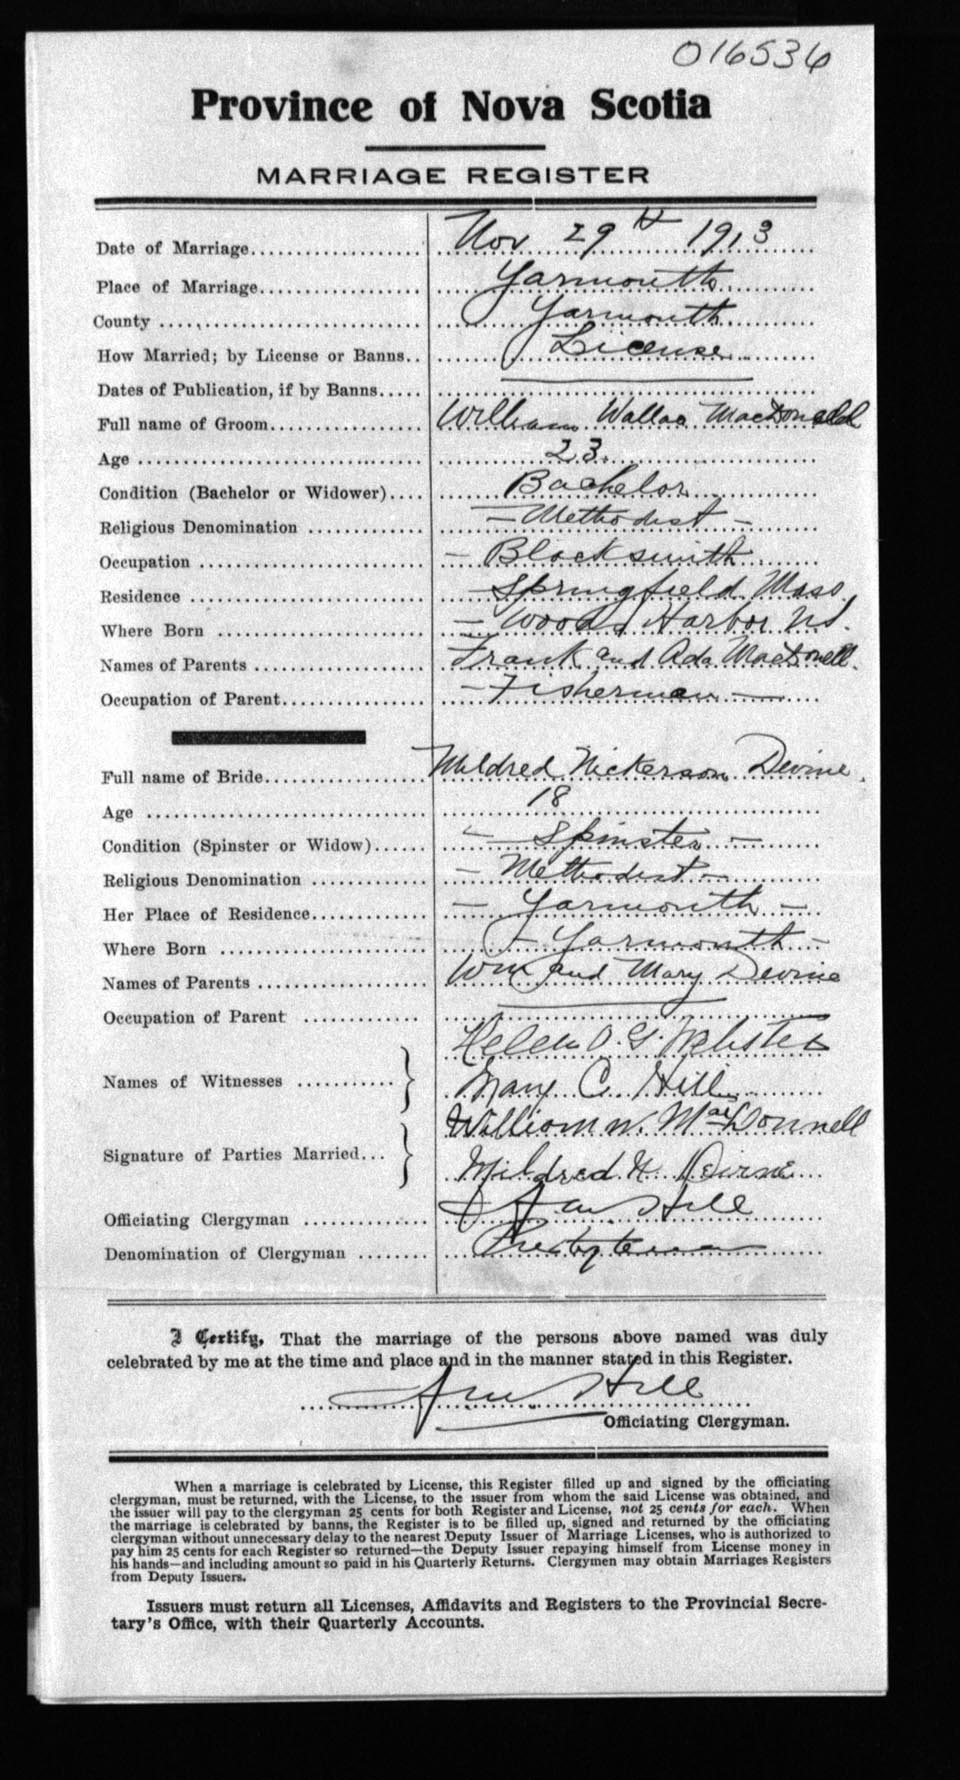 016536
Province of Nova Scotia
MARRIAGE REGISTER
Date of Marriage Nov 29th 1913
Place of Marriage Yarmouth
County Yarmouth
How Married; by License or Banns License
Dates of Publication, if by Banns
Full name of Groom William Wallace MacDonald
Age 23
Condition (Bachelor or Widower) Bachelor
Religious Denomination - Methodist -
Occupation - Blacksmith
Residence - Springfield Mass.
Where Born - Woods Harbor NS.
Names of Parents Frank and Ada MacDonell.
Occupation of Parent - Fisherman -
Full name of Bride Mildred Nickerson Devine.
Age 18
Condition (Spinster or Widow) - Spinster -
Religious Denomination - Methodist -
Her Place of Residence - Yarmouth -
Where Born - Yarmouth -
Names of Parents Wm and Mary Devine
Occupation of Parent
Names of Witnesses Helen O. G. Webster
Mary C. Hill
Signature of Parties Married William W. MacDonnell
Mildred N. Devine
Officiating Clergyman Hill
Denomination of Clergyman Presbyterian
I Certify, That the marriage of the persons above named was duly
celebrated by me at the time and place and in the manner stated in this Register.
Hill
Officiating Clergyman.
When a marriage is celebrated by License, this Register filled up and signed by the officiating
clergyman, must be returned, with the License, to the issuer from whom the said License was obtained, and
the issuer will pay to the clergyman 25 cents for both Register and License, not 25 cents for each. When
the marriage is celebrated by banns, the Register is to be filled up, signed and returned by the officiating
clergyman without unnecessary delay to the nearest Deputy Issuer of Marriage Licenses, who is authorized to
pay him 25 cents for each Register so returned—the Deputy Issuer repaying himself from License money in
his hands—and including amount so paid in his Quarterly Returns. Clergymen may obtain Marriages Registers
from Deputy Issuers.
Issuers must return all Licenses, Affidavits and Registers to the Provincial Secre-
tary's Office, with their Quarterly Accounts.